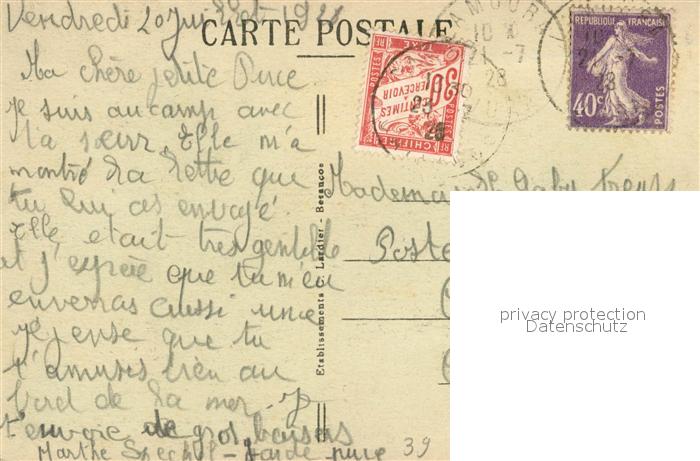 Vendredi 20 Juillet 1928
CARTE POSTALE
Ma chère petite Puce
je suis au camp avec
ta sœur. Elle m'a
montré la lettre que
tu lui as envoyé
Elle était très gentille
et j'espère que tu m'en
enverras aussi une
Je pense que tu
t'amuses bien au
bord de la mer. Je
t'envoie de gros baisers
Marthe
39
Etablissements C. Lardier - Besançon
TAXE
POSTES
30
CENTIMES
A PERCEVOIR
CHIFFRE
REPUBLIQUE FRANÇAISE
40c
POSTES
10
21-7
28
Mademoiselle Gaby
Poste
privacy protection
Datenschutz